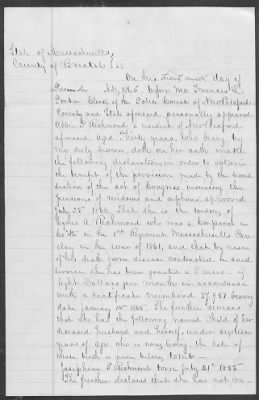 State of Massachusetts,
County of Bristol, ss
On this day of
December A.D. 1866, before me
Clerk of the Police Court of New Bedford
County and State aforesaid, personally appeared
Richmond, a resident of New Bedford
aforesaid, aged years, who being by
me duly sworn doth on her oath make
the following declaration in order to obtain
the benefit of the provision made by the second
section of the act of Congress increasing the
pensions of widows and orphans approved
July 25th 1866. That she is the widow of
A. Richmond who was a Corporal in
Co. in the Regiment Massachusetts
in the war of 1861, and that by reason
of his death from disease contracted in said
service she has been granted a Pension of
Eight Dollars per month in accordance
with a certificate numbered bearing
date January 1865. She further declares
that she had the following named child of her
deceased husband and herself, under sixteen
years of age, who is now living, the date of
whose birth is given below, to wit:—
Josephine Richmond born July 21st 1855
She further declares that she has not